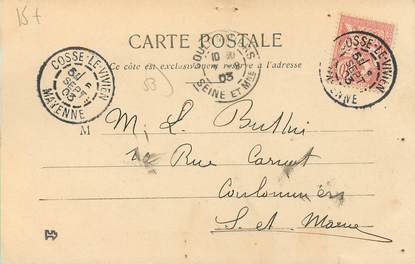 15+
CARTE POSTALE
Ce côté est exclusivement réservé à l'adresse
COSSE-LE-VIVIEN
SEPT
03
MAYENNE
COULOMMIERS
10
03
SEINE ET MNE
COSSE-LE-VIVIEN
SEPT
03
MAYENNE
53)
M
M. L.
Rue Carnot
Coulommiers
S. et Marne